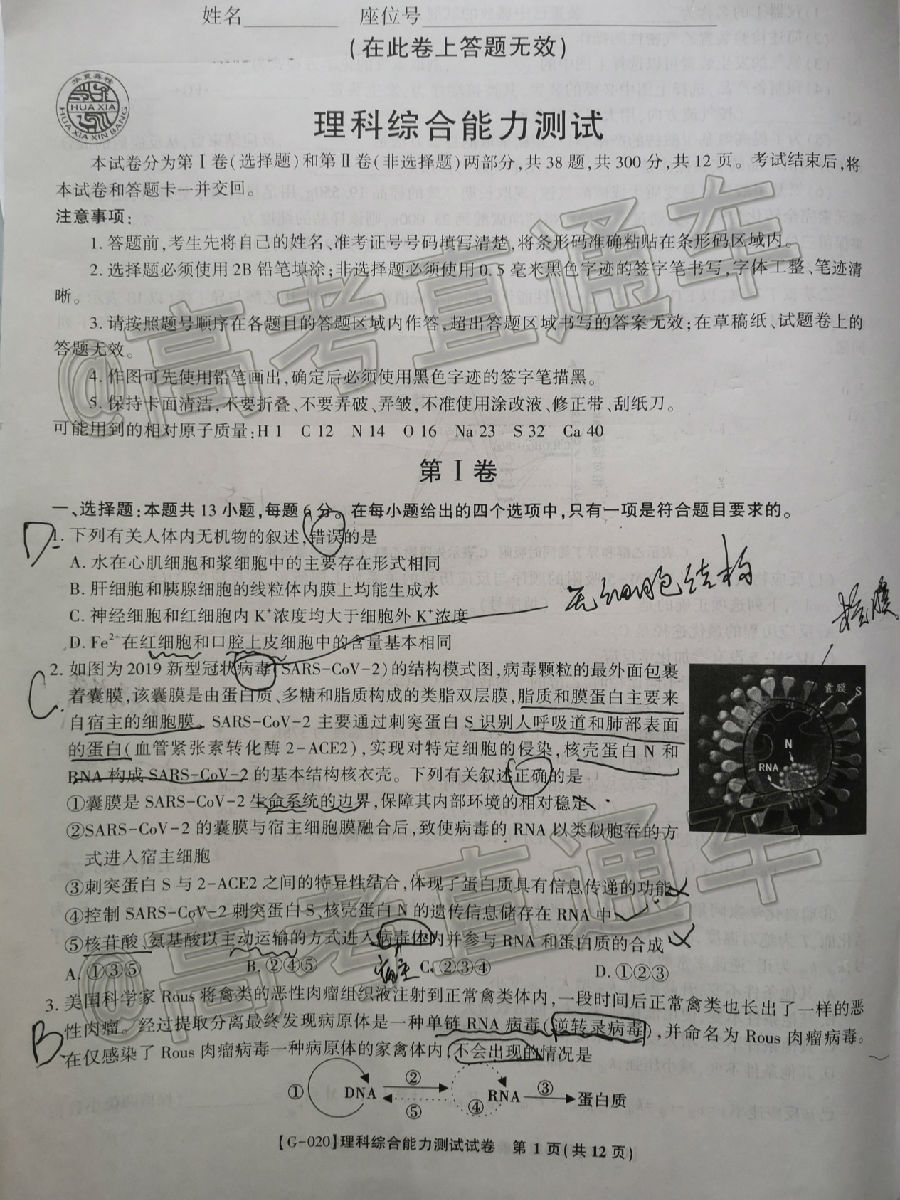 姓名________ 座位号
(在此卷上答题无效)
HUA XIA
HUA XIA XIN BANG
理科综合能力测试
本试卷分为第Ⅰ卷(选择题)和第Ⅱ卷(非选择题)两部分,共38题,共300分,共12页。考试结束后,将
本试卷和答题卡一并交回。
注意事项:
1.答题前,考生先将自己的姓名、准考证号号码填写清楚,将条形码准确粘贴在条形码区域内。
2.选择题必须使用2B铅笔填涂;非选择题必须使用0.5毫米黑色字迹的签字笔书写,字体工整、笔迹清
晰。
3.请按照题号顺序在各题目的答题区域内作答,超出答题区域书写的答案无效;在草稿纸、试题卷上的
答题无效。
4.作图可先使用铅笔画出,确定后必须使用黑色字迹的签字笔描黑。
5.保持卡面清洁,不要折叠、不要弄破、弄皱,不准使用涂改液、修正带、刮纸刀。
可能用到的相对原子质量:H 1 C 12 N 14 O 16 Na 23 S 32 Ca 40
@高考直通车
第Ⅰ卷
一、选择题:本题共13小题,每题6分。在每小题给出的四个选项中,只有一项是符合题目要求的。
D
1.下列有关人体内无机物的叙述,错误的是
A.水在心肌细胞和浆细胞中的主要存在形式相同
B.肝细胞和胰腺细胞的线粒体内膜上均能生成水
C.神经细胞和红细胞内K⁺浓度均大于细胞外K⁺浓度
D.Fe²⁺在红细胞和口腔上皮细胞中的含量基本相同
无细胞结构
C
2.如图为2019新型冠状病毒(SARS-CoV-2)的结构模式图,病毒颗粒的最外面包裹
着囊膜,该囊膜是由蛋白质、多糖和脂质构成的类脂双层膜,脂质和膜蛋白主要来
自宿主的细胞膜。SARS-CoV-2主要通过刺突蛋白S识别人呼吸道和肺部表面
的蛋白(血管紧张素转化酶2-ACE2),实现对特定细胞的侵染,核壳蛋白N和
RNA构成SARS-CoV-2的基本结构核衣壳。下列有关叙述正确的是
囊膜 S
N
RNA
①囊膜是SARS-CoV-2生命系统的边界,保障其内部环境的相对稳定
②SARS-CoV-2的囊膜与宿主细胞膜融合后,致使病毒的RNA以类似胞吞的方
式进入宿主细胞
③刺突蛋白S与2-ACE2之间的特异性结合,体现了蛋白质具有信息传递的功能
④控制SARS-CoV-2刺突蛋白S、核壳蛋白N的遗传信息储存在RNA中
⑤核苷酸、氨基酸以主动运输的方式进入病毒体内并参与RNA和蛋白质的合成
A.①③⑤ B.②④⑤ C.②③④ D.①②③
@高考直通车
B
3.美国科学家Rous将禽类的恶性肉瘤组织液注射到正常禽类体内,一段时间后正常禽类也长出了一样的恶
性肉瘤。经过提取分离最终发现病原体是一种单链RNA病毒(逆转录病毒),并命名为Rous肉瘤病毒。
在仅感染了Rous肉瘤病毒一种病原体的家禽体内,不会出现的情况是
① DNA ② ⑤ ④ RNA ③ 蛋白质
【G-020】理科综合能力测试试卷 第1页(共12页)